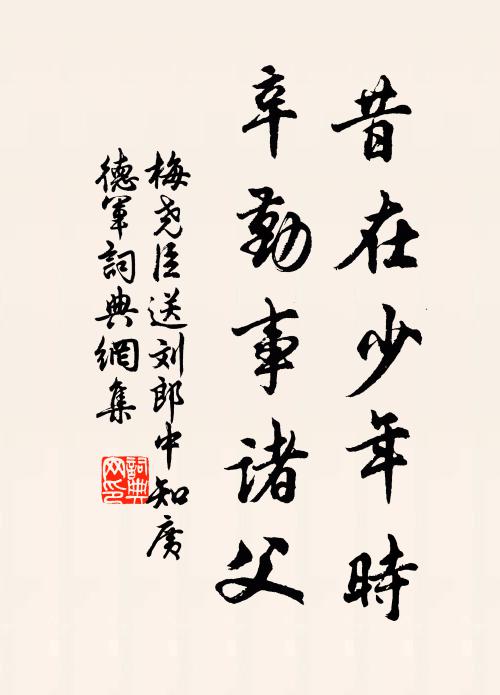 昔在少年時
辛勤事諸父
梅尧臣送刘郎中知廣
德軍詞典網集
詞典網印